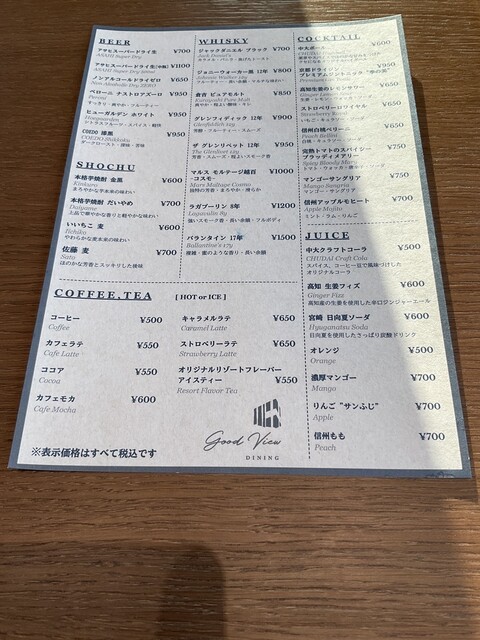 BEER
アサヒスーパードライ生 ¥700
ASAHI Super Dry
アサヒスーパードライ生(中瓶) ¥1100
ASAHI Super Dry
ノンアルコールドライゼロ ¥650
Non-Alcoholic Dry ZERO
ペローニ ナストロアズーロ ¥950
Peroni
すっきり・爽やか・フルーティー
ヒューガルデン ホワイト ¥950
Hoegaarden
シトラスフルーツ・スパイス・軽快
COEDO 漆黒 ¥950
COEDO Shikkoku
ダークロースト・深味・苦味
SHOCHU
本格芋焼酎 金黒 ¥600
Kinkuro
まろやかな芋本来の味わい
本格芋焼酎 だいやめ ¥700
Daiyame
上品で華やかな香りと軽やかな味わい
いいちこ 麦 ¥600
Iichiko
やわらかな麦本来の味わい
佐藤 麦 ¥700
Sato
ほのかな芳香とスッキリした後味
WHISKY
ジャックダニエル ブラック ¥700
Jack Daniel's
ジョニーウォーカー黒 12年 ¥800
Johnnie Walker 12y
倉吉 ピュアモルト ¥850
Kurayoshi Pure Malt
グレンフィディック 12年 ¥900
Glenfiddich 12y
芳醇・フルーティー・スムーズ
ザ グレンリベット 12年 ¥950
The Glenlivet 12y
芳香・スムーズ・程よいスモーク香
マルス モルテージ越百 ¥1000
-コスモ-
Mars Maltage Cosmo
独特の芳香・まろやか・滑らか
ラガブーリン 8年 ¥1200
Lagavulin 8y
強いスモーク香・長い余韻・フルボディ
バランタイン 17年 ¥1500
Ballantine's 17y
複雑・蜜のような香り・長い余韻
COCKTAIL
中大ボール ¥600
京都ドライジン
プレミアムジントニック "季の美" ¥950
高知生姜のレモンサワー ¥750
Ginger Lemon Sour
生姜・レモン
ストロベリーロワイヤル ¥750
Strawberry Royal
信州白桃ベリーニ ¥750
Peach Bellini
白桃・キュラソー
完熟トマトのスパイシー
ブラッディメアリー ¥750
Spicy Bloody Mary
トマト・ウォッカ・唐辛子
マンゴーサングリア ¥750
Mango Sangria
マンゴー・キュラソー
信州アップルモヒート ¥700
Apple Mojito
ミント・ラム・りんご
JUICE
中大クラフトコーラ ¥500
CHUDAI Craft Cola
スパイス、コーヒー豆で風味づけした
オリジナルコーラ
高知 生姜フィズ ¥600
Ginger Fizz
高知産の生姜を使用した辛口ジンジャーエール
宮崎 日向夏ソーダ ¥600
Hyuganatsu Soda
日向夏を使用したさっぱり炭酸ドリンク
オレンジ ¥500
Orange
濃厚マンゴー ¥700
Mango
りんご "サンふじ" ¥700
Apple
信州もも ¥700
Peach
COFFEE,TEA [ HOT or ICE ]
コーヒー ¥500
Coffee
カフェラテ ¥550
Cafe Latte
ココア ¥550
Cocoa
カフェモカ ¥600
Cafe Mocha
キャラメルラテ ¥650
Caramel Latte
ストロベリーラテ ¥650
Strawberry Latte
オリジナルリゾートフレーバー
アイスティー ¥550
Resort Flavor Tea
Good View
DINING
※表示価格はすべて税込です